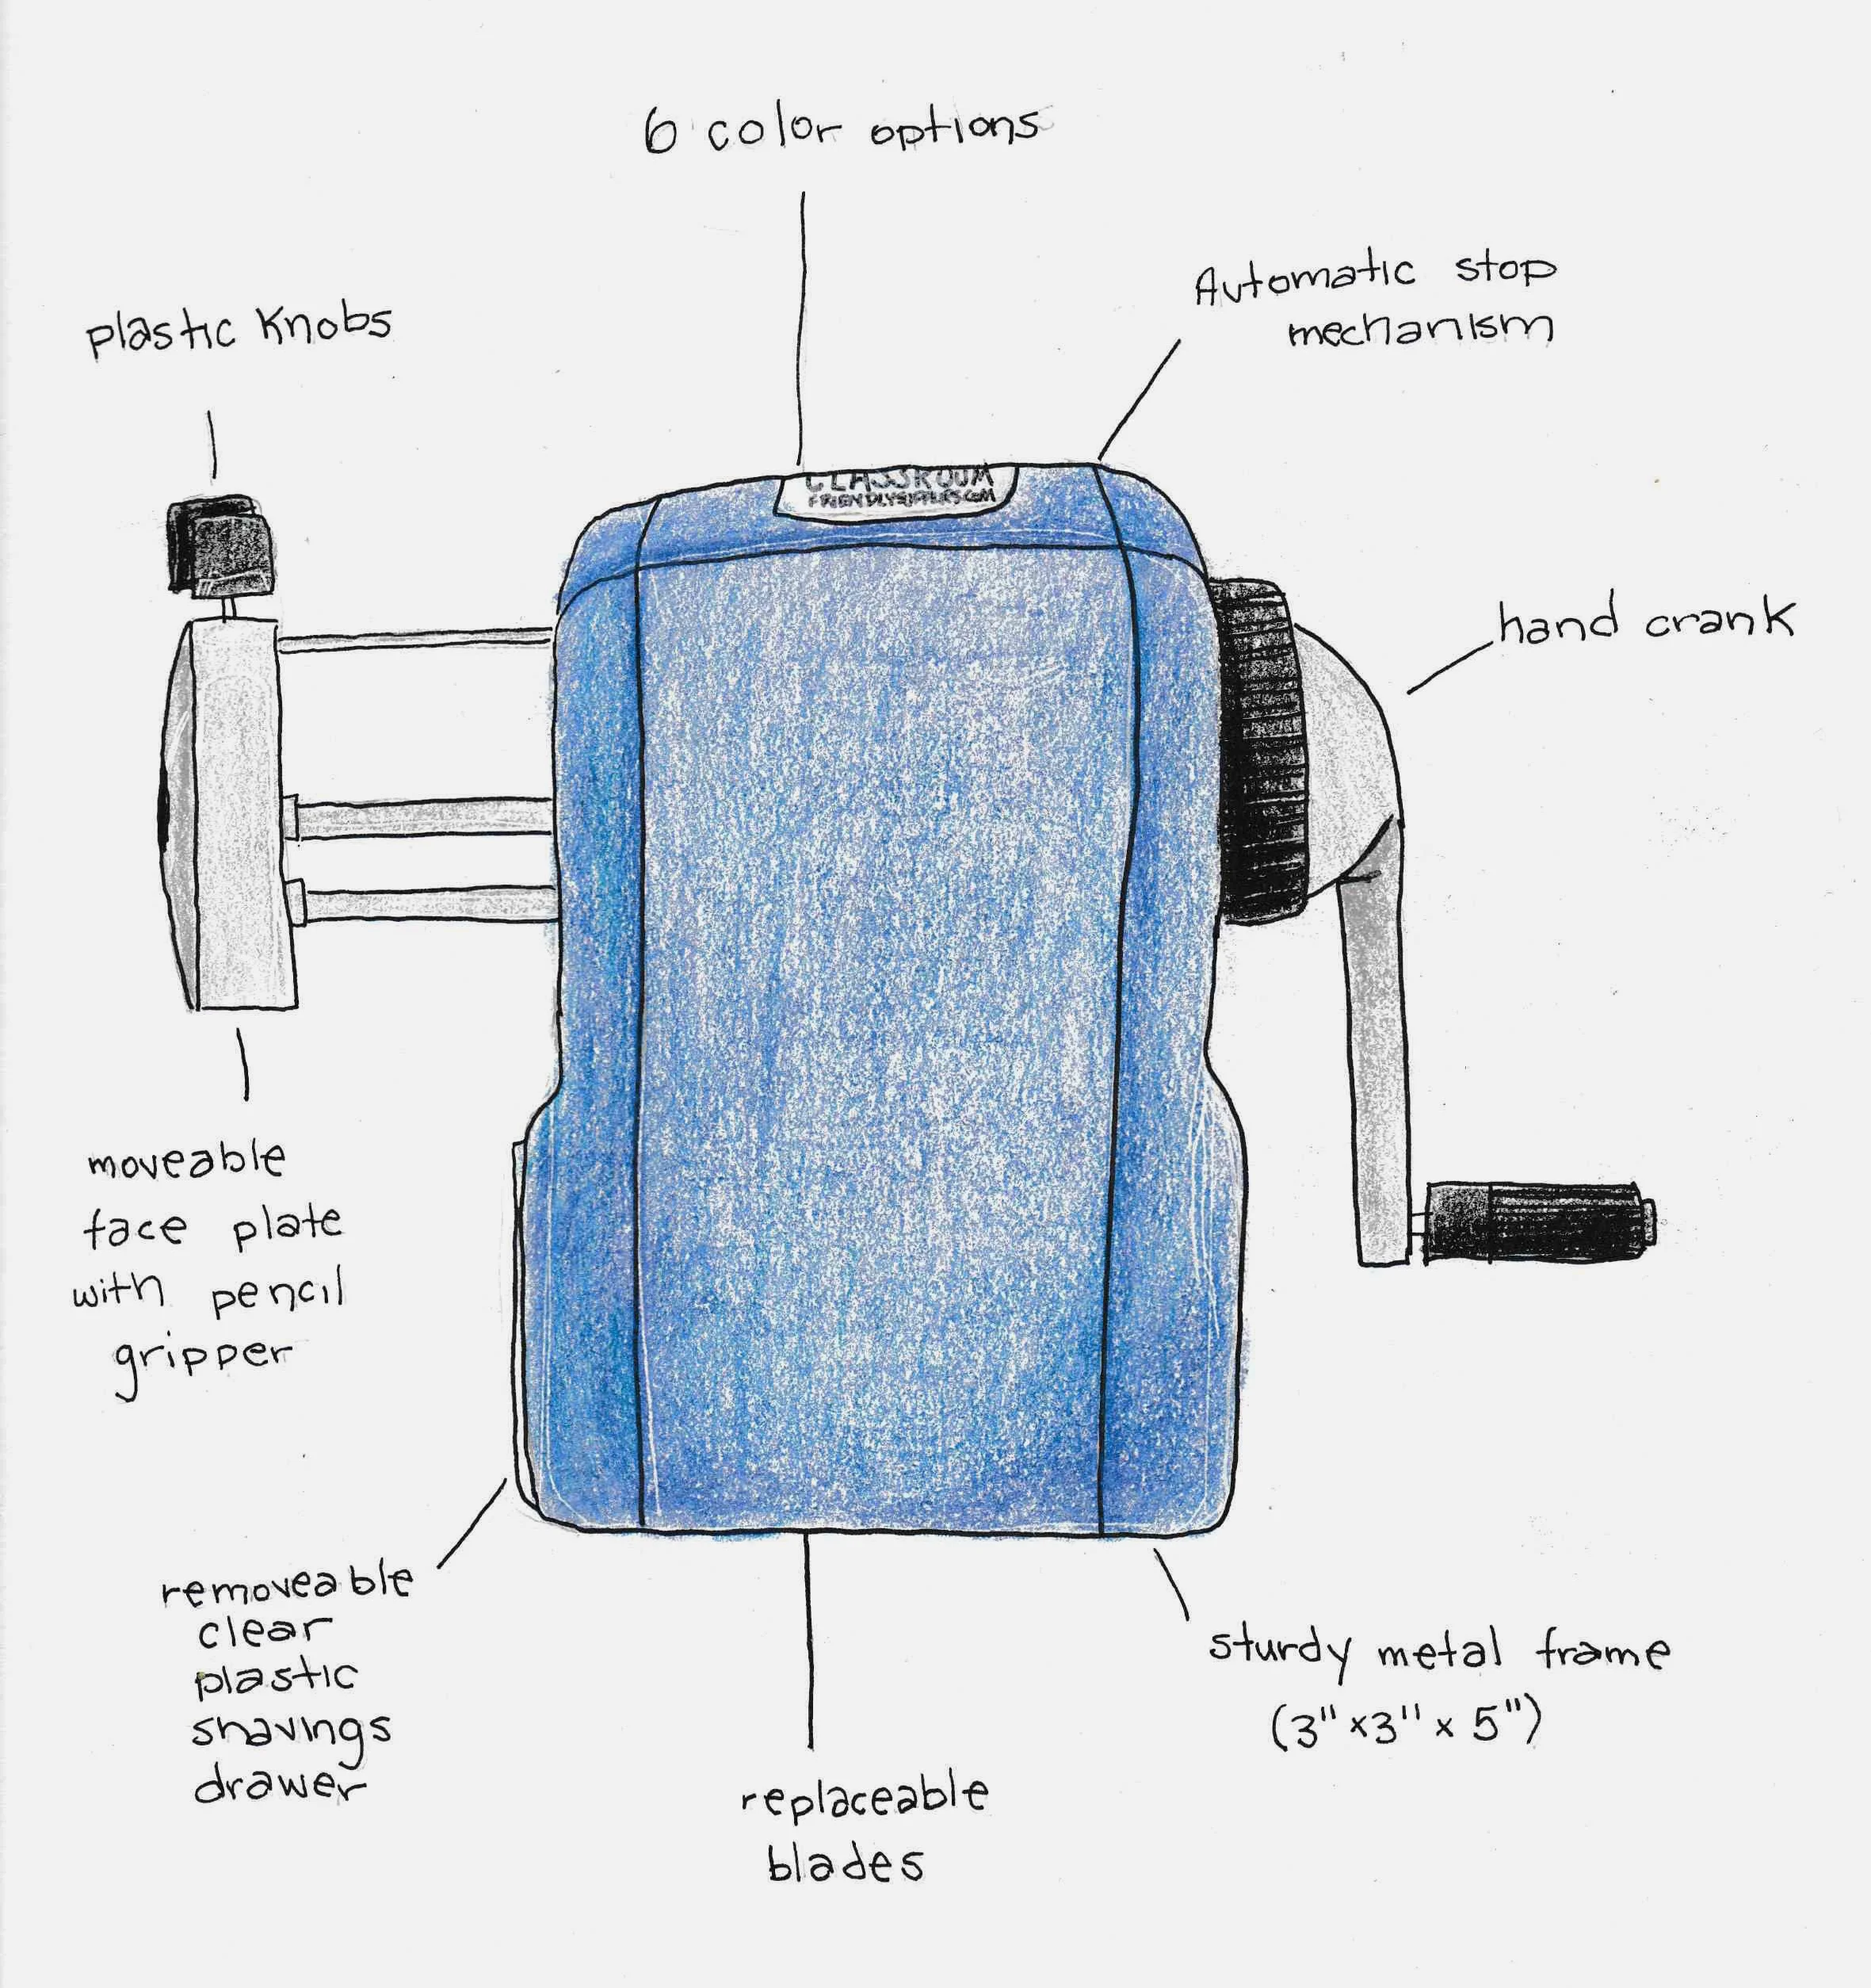 6 color options
Automatic stop
mechanism
plastic knobs
CLASSROOM
hand crank
moveable
face plate
with pencil
gripper
removeable
clear
plastic
shavings
drawer
sturdy metal frame
(3" x 3" x 5")
replaceable
blades